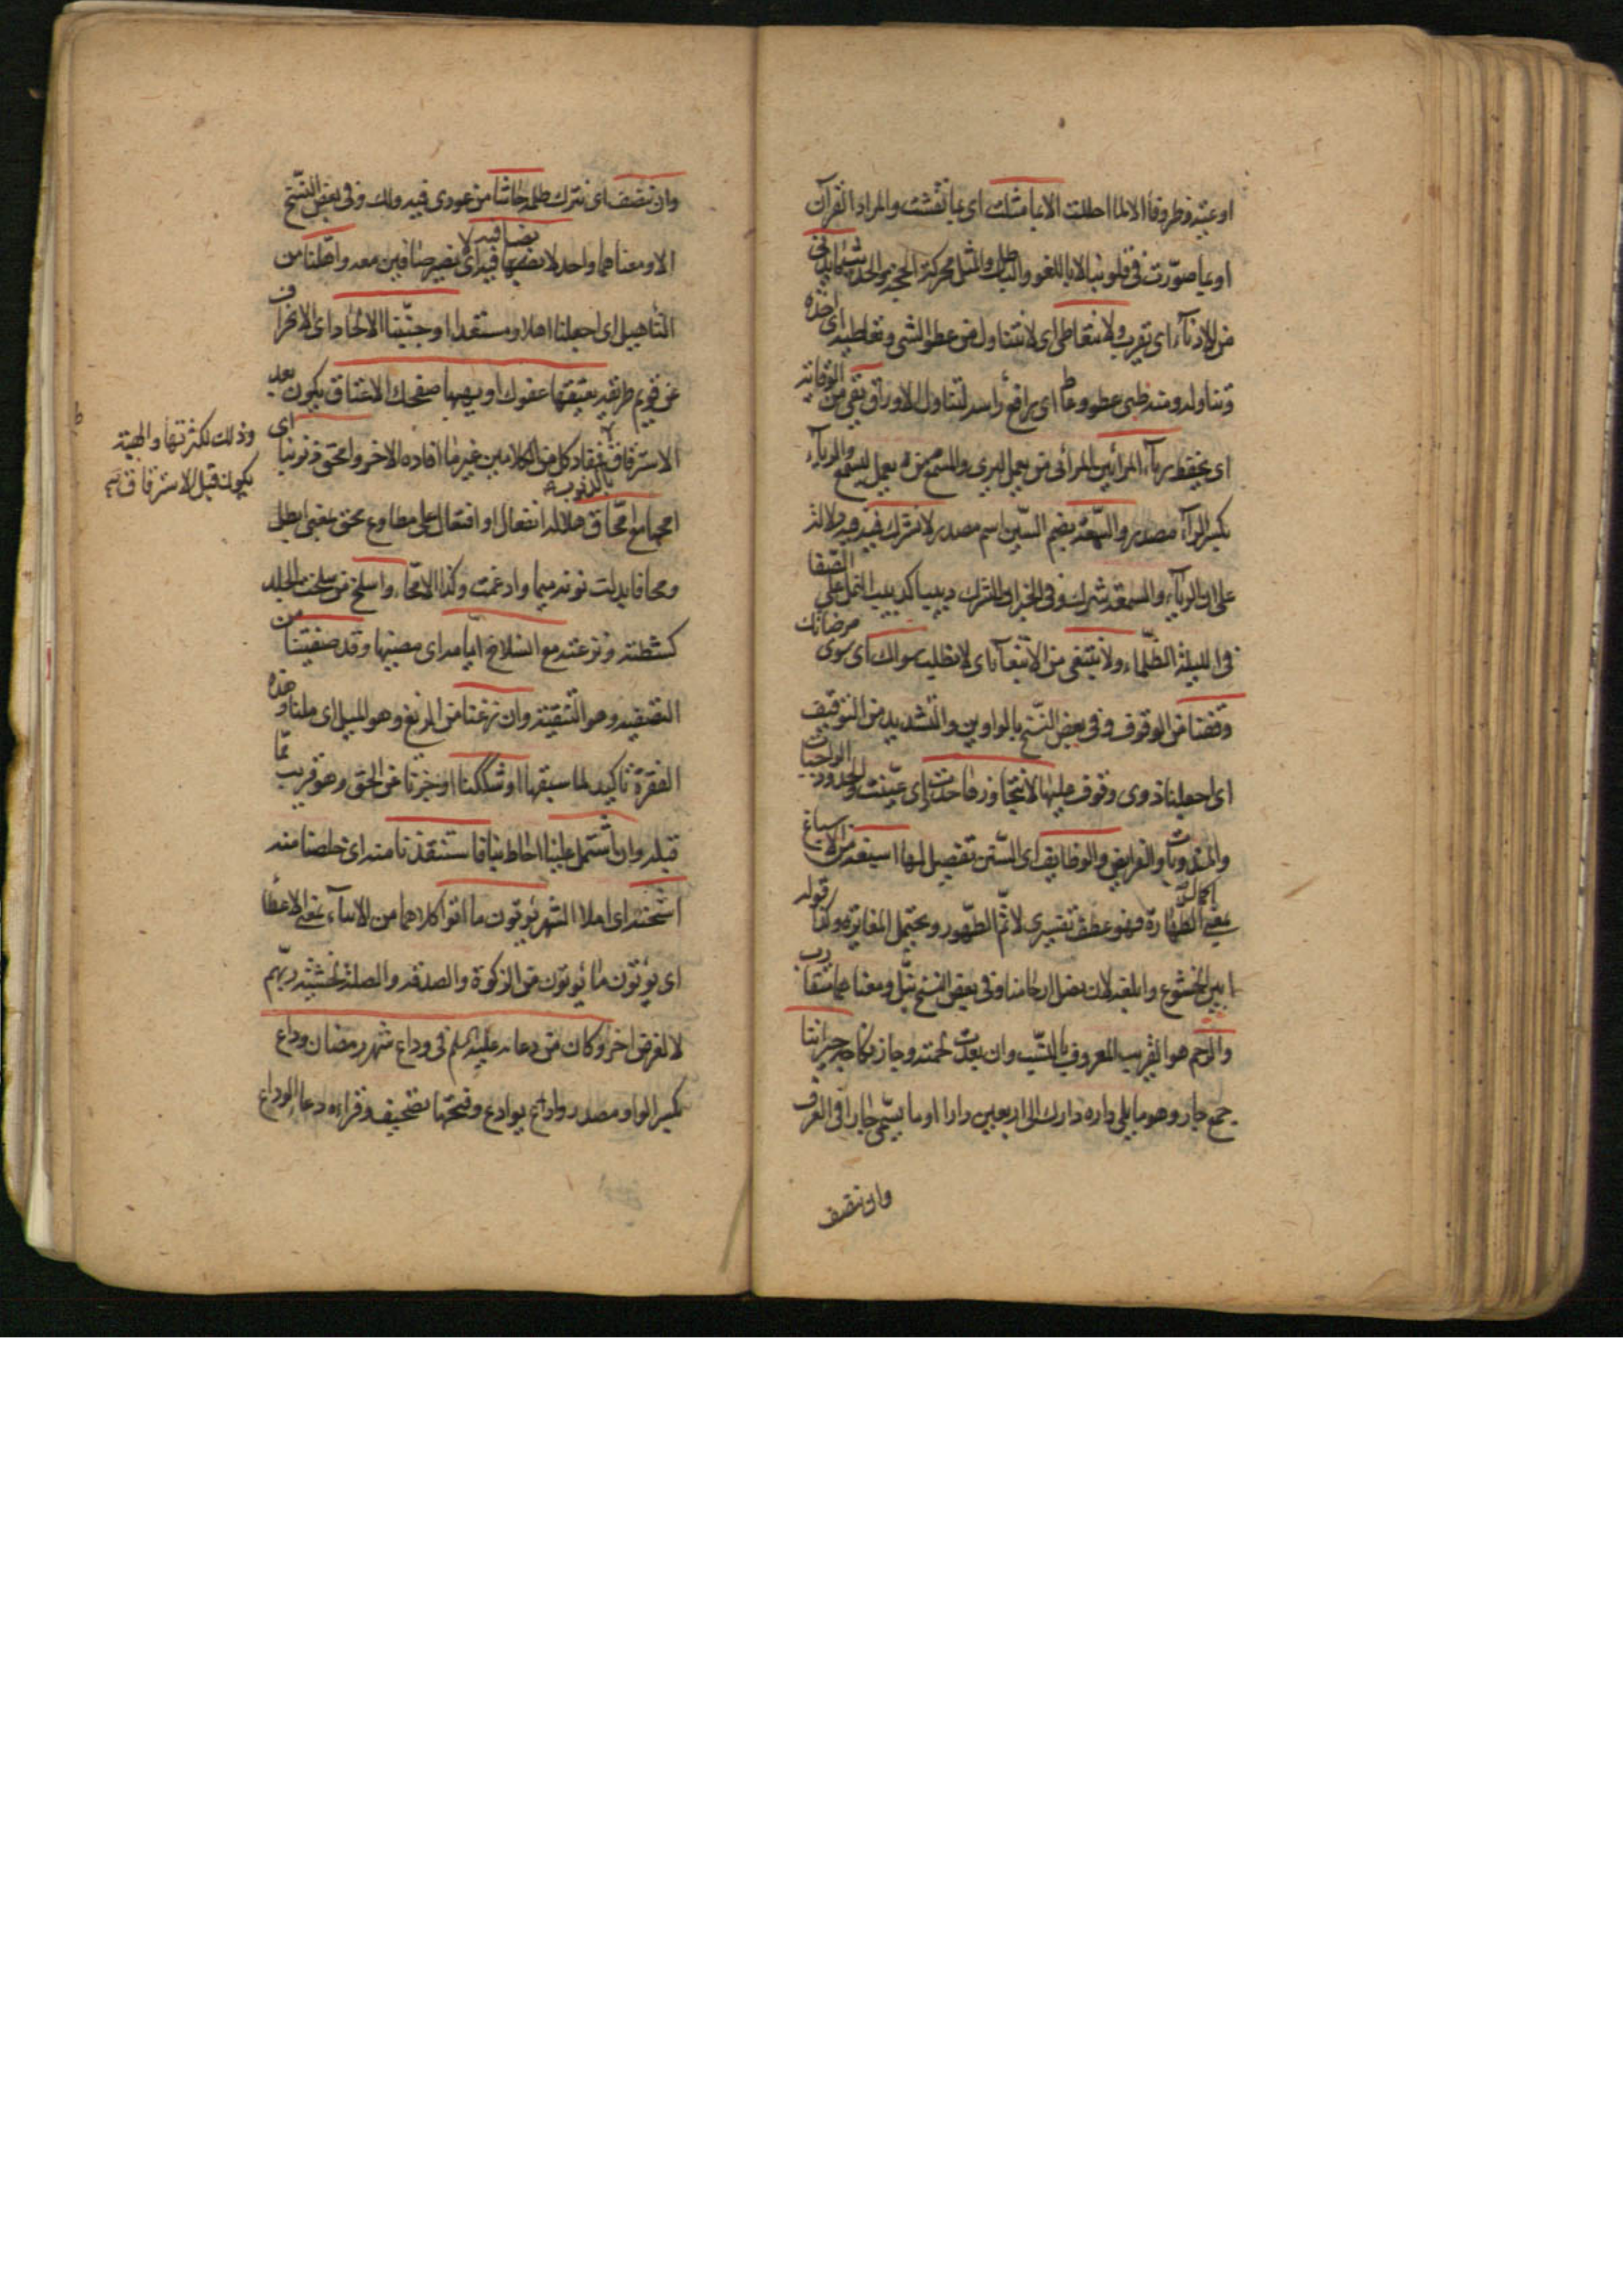 اوعية وظروفا الا لما احللت الا بما مثلت ای بما نقشت والمراد القرآن
او بما صوّرت فی قلوبنا لا باللغو والباطل والمثل محركة الحجة والحديث مايدنی
من الادناء ای يقرب ولا نتعاطی ای لا نتناول من عطو الشی وتعاطيه ای اخذه
وتناوله ومنه ظبی عطو وعاط ای يرافع رأسه لتناول الاوراق يقی من الوقاية
ای يحفظ رياء المرائين المرائی من يعمل ليری والمسمع من يعمل ليسمع والرياء
بكسر الراء مصدر والسمعة بضم السّين اسم مصدر لا نشرك فيه فيه دلالة
علی ان الرياء والسمعة شرك وفی الخبر ان للشرك دبيبا كدبيب النمل علی الصّفا
فی الليلة الظّلماء ولا نبتغی من الابتغاء ای لا نطلب سواك ای سوی مرضاتك
وقفنا من الوقوف وفی بعض النّسخ بالواوين والتشديد من التوقيف
ای اجعلنا ذوی وقوف عليها لا نتجاوزها حددت ای عيّنت والحدود الواجبات
والمندوبات والفرايض والوظايف ای السّنن تفصيل لها اسبغه من الاسباغ
اكمال
يعنی الطّهارة فهو عطف تفسيری لاتمّ الطّهور ويحتمل المغايرة وكذا قوله
ابين الخشوع وابلغه لان نصل ارحامنا وفی بعض النسخ نبلّ ومعناهما متقارب
والرّحم هو القريب المعروف بالنسب وان بعدت لحمته وجاز نكاحه جيراننا
جمع جار وهو ما يلی داره دارك الی اربعين دارا او ما يسمّی جارا فی العرف
وان ننصف
وان ننصف ای نترك ظلمه حاشا من عودی فيه ولك وفی بعض النّسخ
الا ومعناهما واحد لا نصافيه ای نصير صافين معه واهّلنا من
التأهيل ای اجعلنا اهلا ومستعدا وجنّبنا الالحاد ای الانحراف
عن قويم طريقه يعتقها عفوك او يهبها صفحك الاعتاق يكون بعد
الاسترقاق فيفاد كل من الكلامين غير ما افاده الاخر وامحق ذنوبنا ای
وذلك لكثرتها والهبة
يكون قبل الاسترقاق
بالذنوب
امحها مع امّحاق هلاله انفعال او افتعال علی مطاوع محق بمعنی ابطل
ومحا فابدلت نونه ميما وادغمت وكذا الامّحاء واسلخ من سلخت الجلد
كشطته ونزعته مع انسلاخ ايّامه ای مضيّها وقد صفيتنا من
التصفية وهو التنقية وان زغنا من الزيغ وهو الميل ای ملنا وهذه
الفقرة تاكيد لما سبقها او شككنا او تحيّرنا عن الحق وهو قريب ممّا
قبله وان يشتمل علينا احاط بنا فاستنقذنا منه ای خلصنا منه
اشحنه ای املا الشهر يؤتون ما اتوا كلاهما من الايتاء بمعنی الاعطا
ای يؤتون ما يؤتون من الزكوة والصدقة والصلة لخشية ربّهم
لا لغرض اخر وكان من دعائه عليه السلم فی وداع شهر رمضان وداع
بكسر الواو مصدر وادع يوادع وفتحها تصحيف وقراءه دعاء الوداع